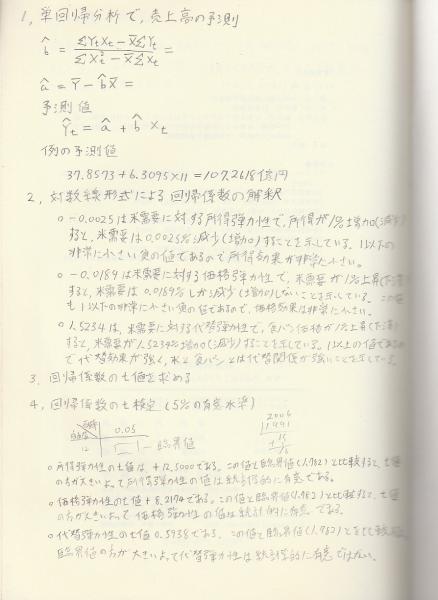 1, 単回帰分析で、売上高の予測
b̂ = ΣYtXt − X̄ΣYt / ΣXt² − X̄ΣXt =
â = Ȳ − b̂X̄ =
予測値
Ŷt = â + b̂ Xt
例の予測値
37.8573 + 6.3095×11 = 107.2618億円
2, 対数線形式による回帰係数の解釈
○ −0.0025は米需要に対する所得弾力性で、所得が1%増加(減少)
すると、米需要は0.0025%減少(増加)することを示している。1以下の
非常に小さい負の値であるので所得効果が非常に小さい。
○ −0.0189は米需要に対する価格弾力性で、米需要が1%上昇(下落)
すると、米需要は0.0189%しか減少(増加)しないことを示している。この値
も1以下の非常に小さい負の値であるので、価格効果は非常に小さい。
○ 1.5234は、米需要に対する代替弾力性で、食パン価格が1%上昇(下落)
すると、米需要が1.5234%増加(減少)することを示している。1以上の値であるの
で代替効果が強く、米と食パンとは代替関係が強いことを示している。
3, 回帰係数のt値を求める
4, 回帰係数のt検定 (5%の有意水準)
0.05
自由度
12 臨界値
2006
1991
15
○ 所得弾力性のt値は、+12.5000である。この値と臨界値(1.782)と比較すると、t値
の方が大きい。よって所得弾力性の値は統計的に有意である。
○ 価格弾力性のt値+8.2174である。この値と臨界値(1.782)と比較すると、t値
の方が大きい。よって価格弾力性の値は統計的に有意である。
○ 代替弾力性のt値0.5938である。この値と臨界値(1.782)とを比較
臨界値の方が大きい。よって代替弾力性は統計的に有意ではない。